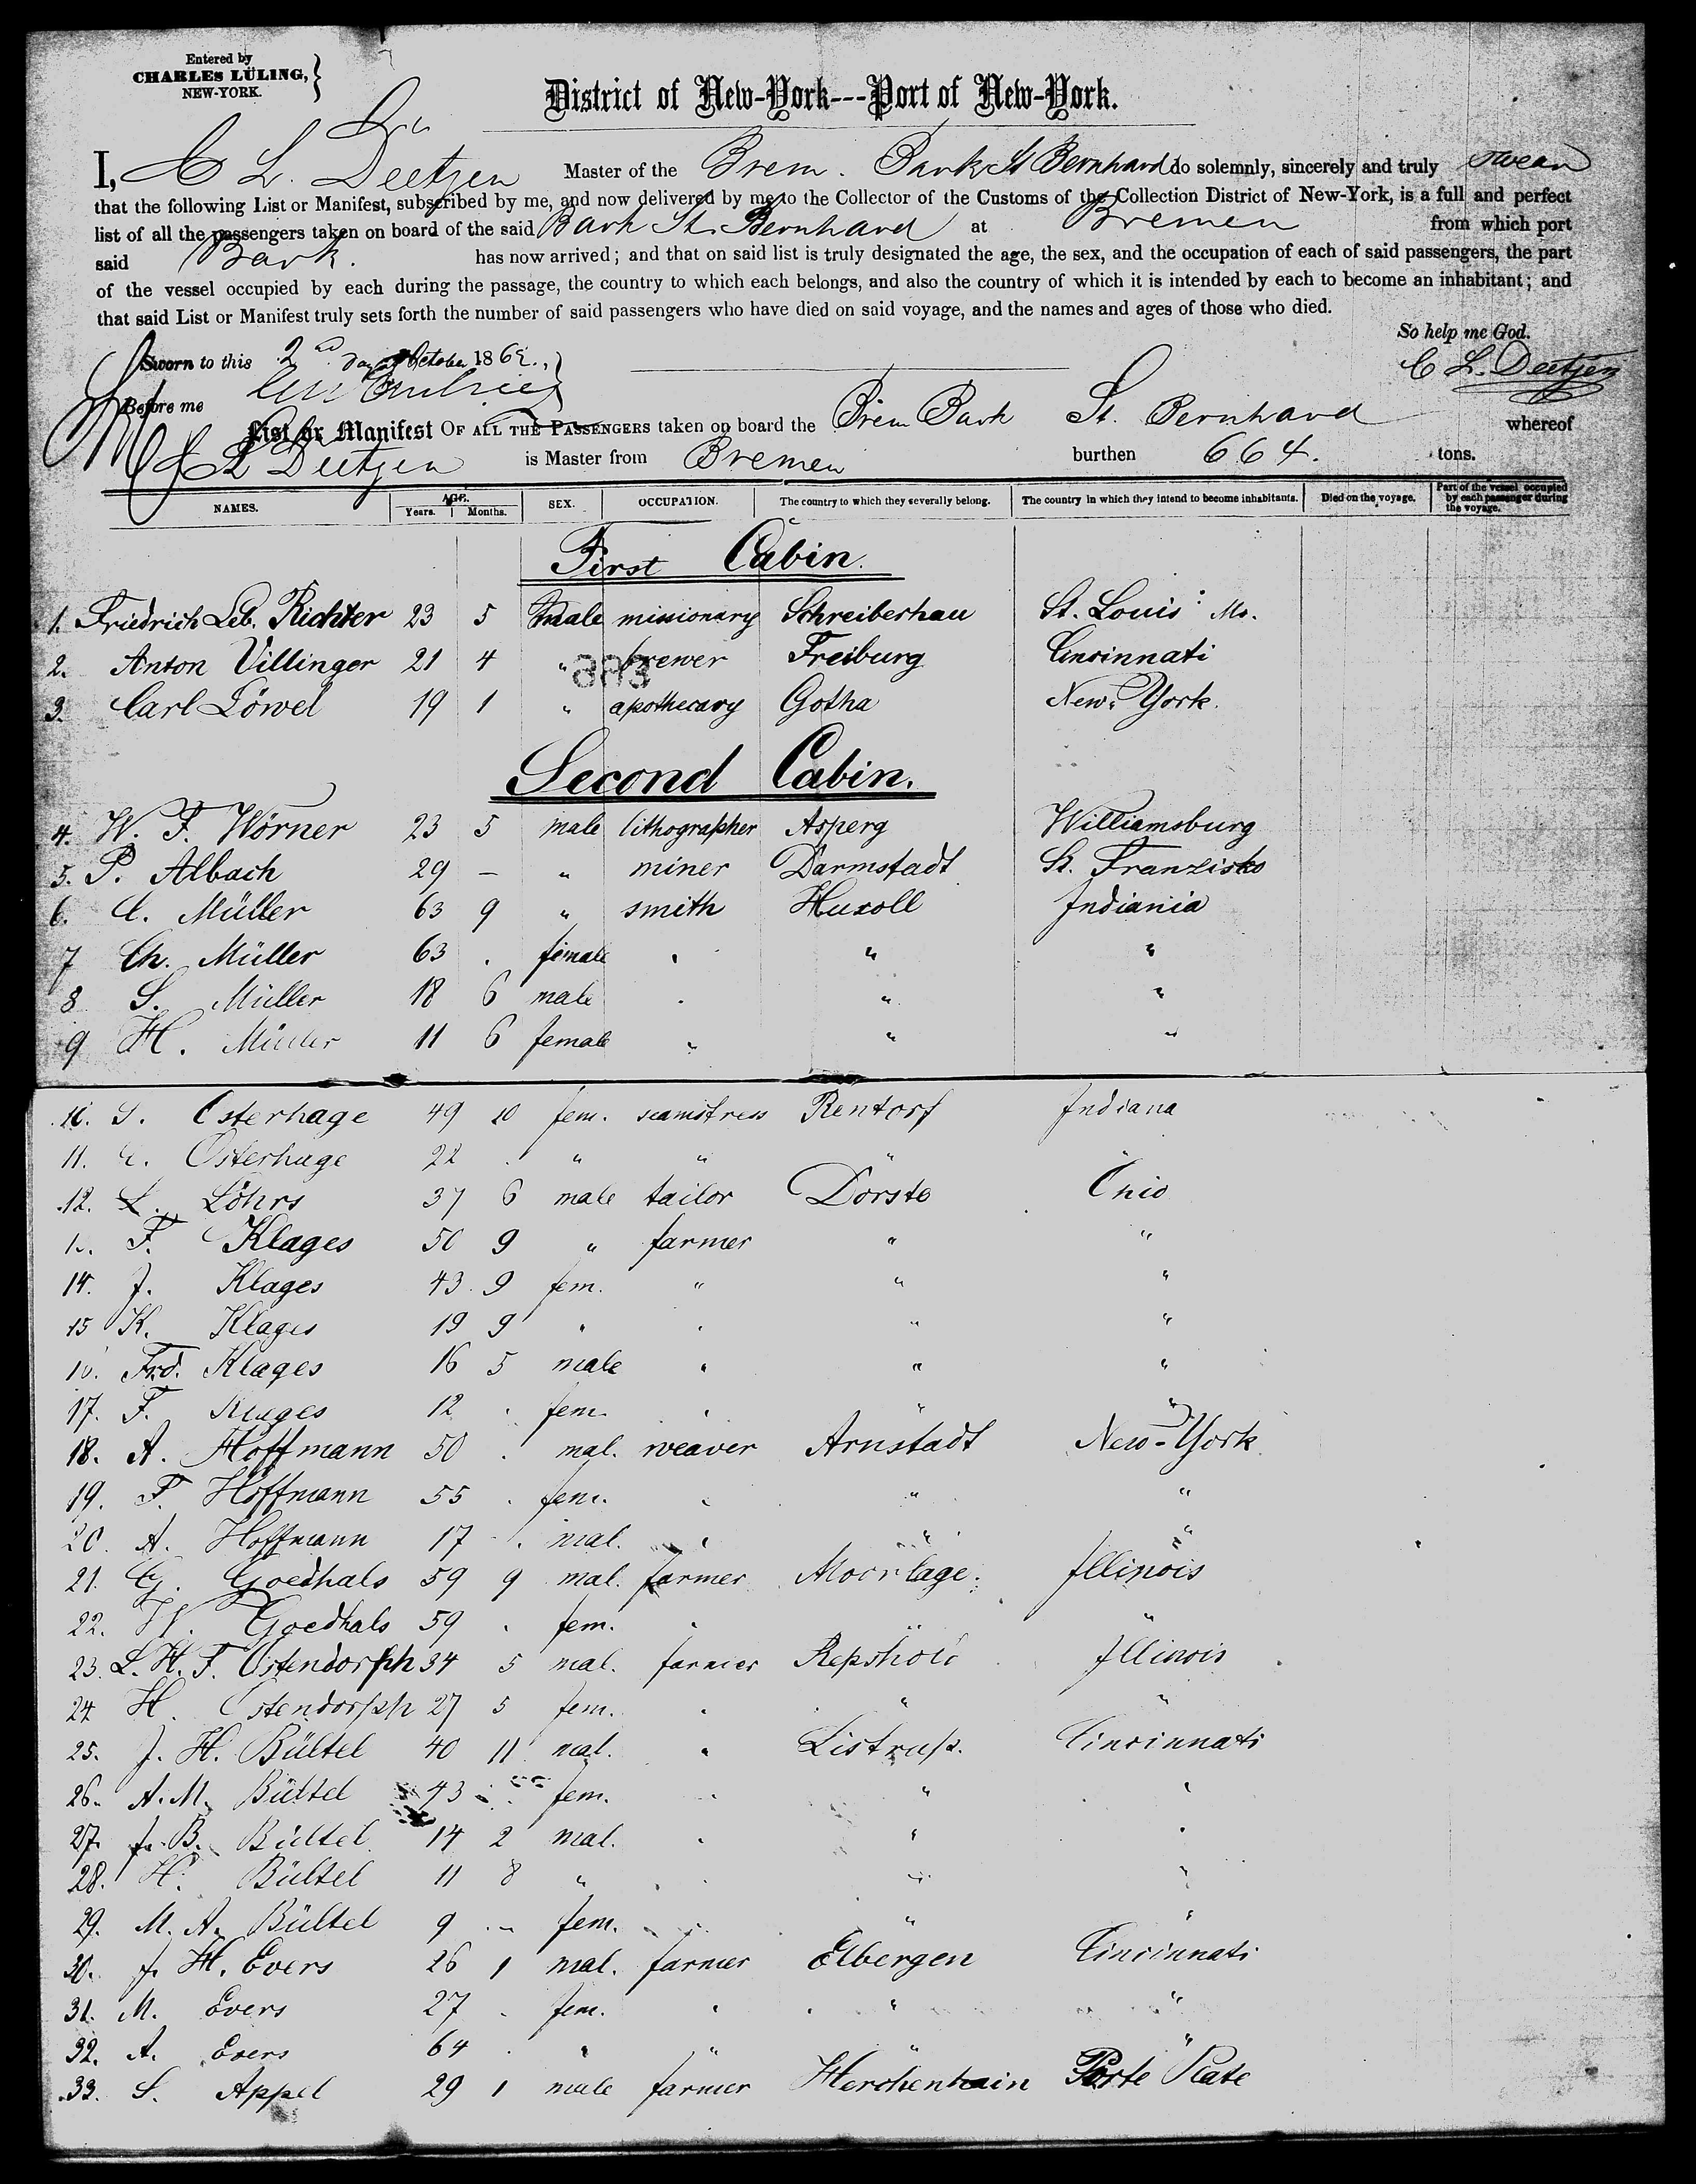 Entered by
CHARLES LÜLING,
NEW-YORK.
District of New-York---Port of New-York.
I, C L. Deetjen Master of the Brem. Bark St Bernhard do solemnly, sincerely and truly swear
that the following List or Manifest, subscribed by me, and now delivered by me to the Collector of the Customs of the Collection District of New-York, is a full and perfect
list of all the passengers taken on board of the said Bark St. Bernhard at Bremen from which port
said Bark. has now arrived; and that on said list is truly designated the age, the sex, and the occupation of each of said passengers, the part
of the vessel occupied by each during the passage, the country to which each belongs, and also the country of which it is intended by each to become an inhabitant; and
that said List or Manifest truly sets forth the number of said passengers who have died on said voyage, and the names and ages of those who died.
So help me God.
Sworn to this 2nd day of October 186
C L. Deetjen
Before me
List or Manifest OF ALL THE PASSENGERS taken on board the Brem Bark St. Bernhard whereof
C L Deetjen is Master from Bremen burthen 664. tons.
NAMES. AGE. Years. Months. SEX. OCCUPATION. The country to which they severally belong. The country in which they intend to become inhabitants. Died on the voyage. Part of the vessel occupied by each passenger during the voyage.
First Cabin.
1. Friedrich Leb. Richter 23 5 male missionary Schreiberhau St. Louis Mo.
2. Anton Villinger 21 4 " brewer Freiburg Cincinnati
3. Carl Löwel 19 1 " apothecary Gotha New-York.
Second Cabin.
4. W. F. Wörner 23 5 male lithographer Asperg Williamsburg
5. P. Albach 29 – " miner Darmstadt St. Franzisko
6. C. Müller 63 9 " smith Huxoll Indiania
7 Ch. Müller 63 . female . " "
8 S. Müller 18 6 male . " "
9 H. Müller 11 6 female " " "
10. S. Osterhage 49 10 fem. seamstress Rentorf Indiana
11. Osterhage 22 . " " " "
12. L. Löhrs 37 6 male tailor Dorste Ohio
F. Klages 50 9 " farmer " "
14. J. Klages 43. 9 fem. " " "
15 K. Klages 19 9 " . " "
Frd. Klages 16 5 male " " "
17. F. Klages 12 . fem. . " "
18. A. Hoffmann 50 . mal. weaver Arnstadt New-York.
19. F. Hoffmann 55 . fem. " " "
20. A. Hoffmann 17 . mal. " " "
21. G. Goedhals 59 9 mal. farmer Moorlage. Illinois
22. W. Goedhals 59 . fem. . " "
23. L. H. F. Ostendorph 34 5 mal. farmer Illinois
24 H. Ostendorph 27 5 fem. . " "
25. J. H. Bültel 40 11 mal. " Listrup. Cincinnati
26. A. M. Bültel 43 fem. . " "
27. J. B. Bültel 14 2 mal. . " "
28. H. Bültel 11 8 " . " "
29. M. A. Bültel 9 fem. . " "
30. J. H. Evers 26 1 mal. farmer Elbergen Cincinnati
31. M. Evers 27 . fem. " " "
32. A. Evers 64 . " " " "
33. S. Appel 29 1 male farmer Herchenhain Porte Plate